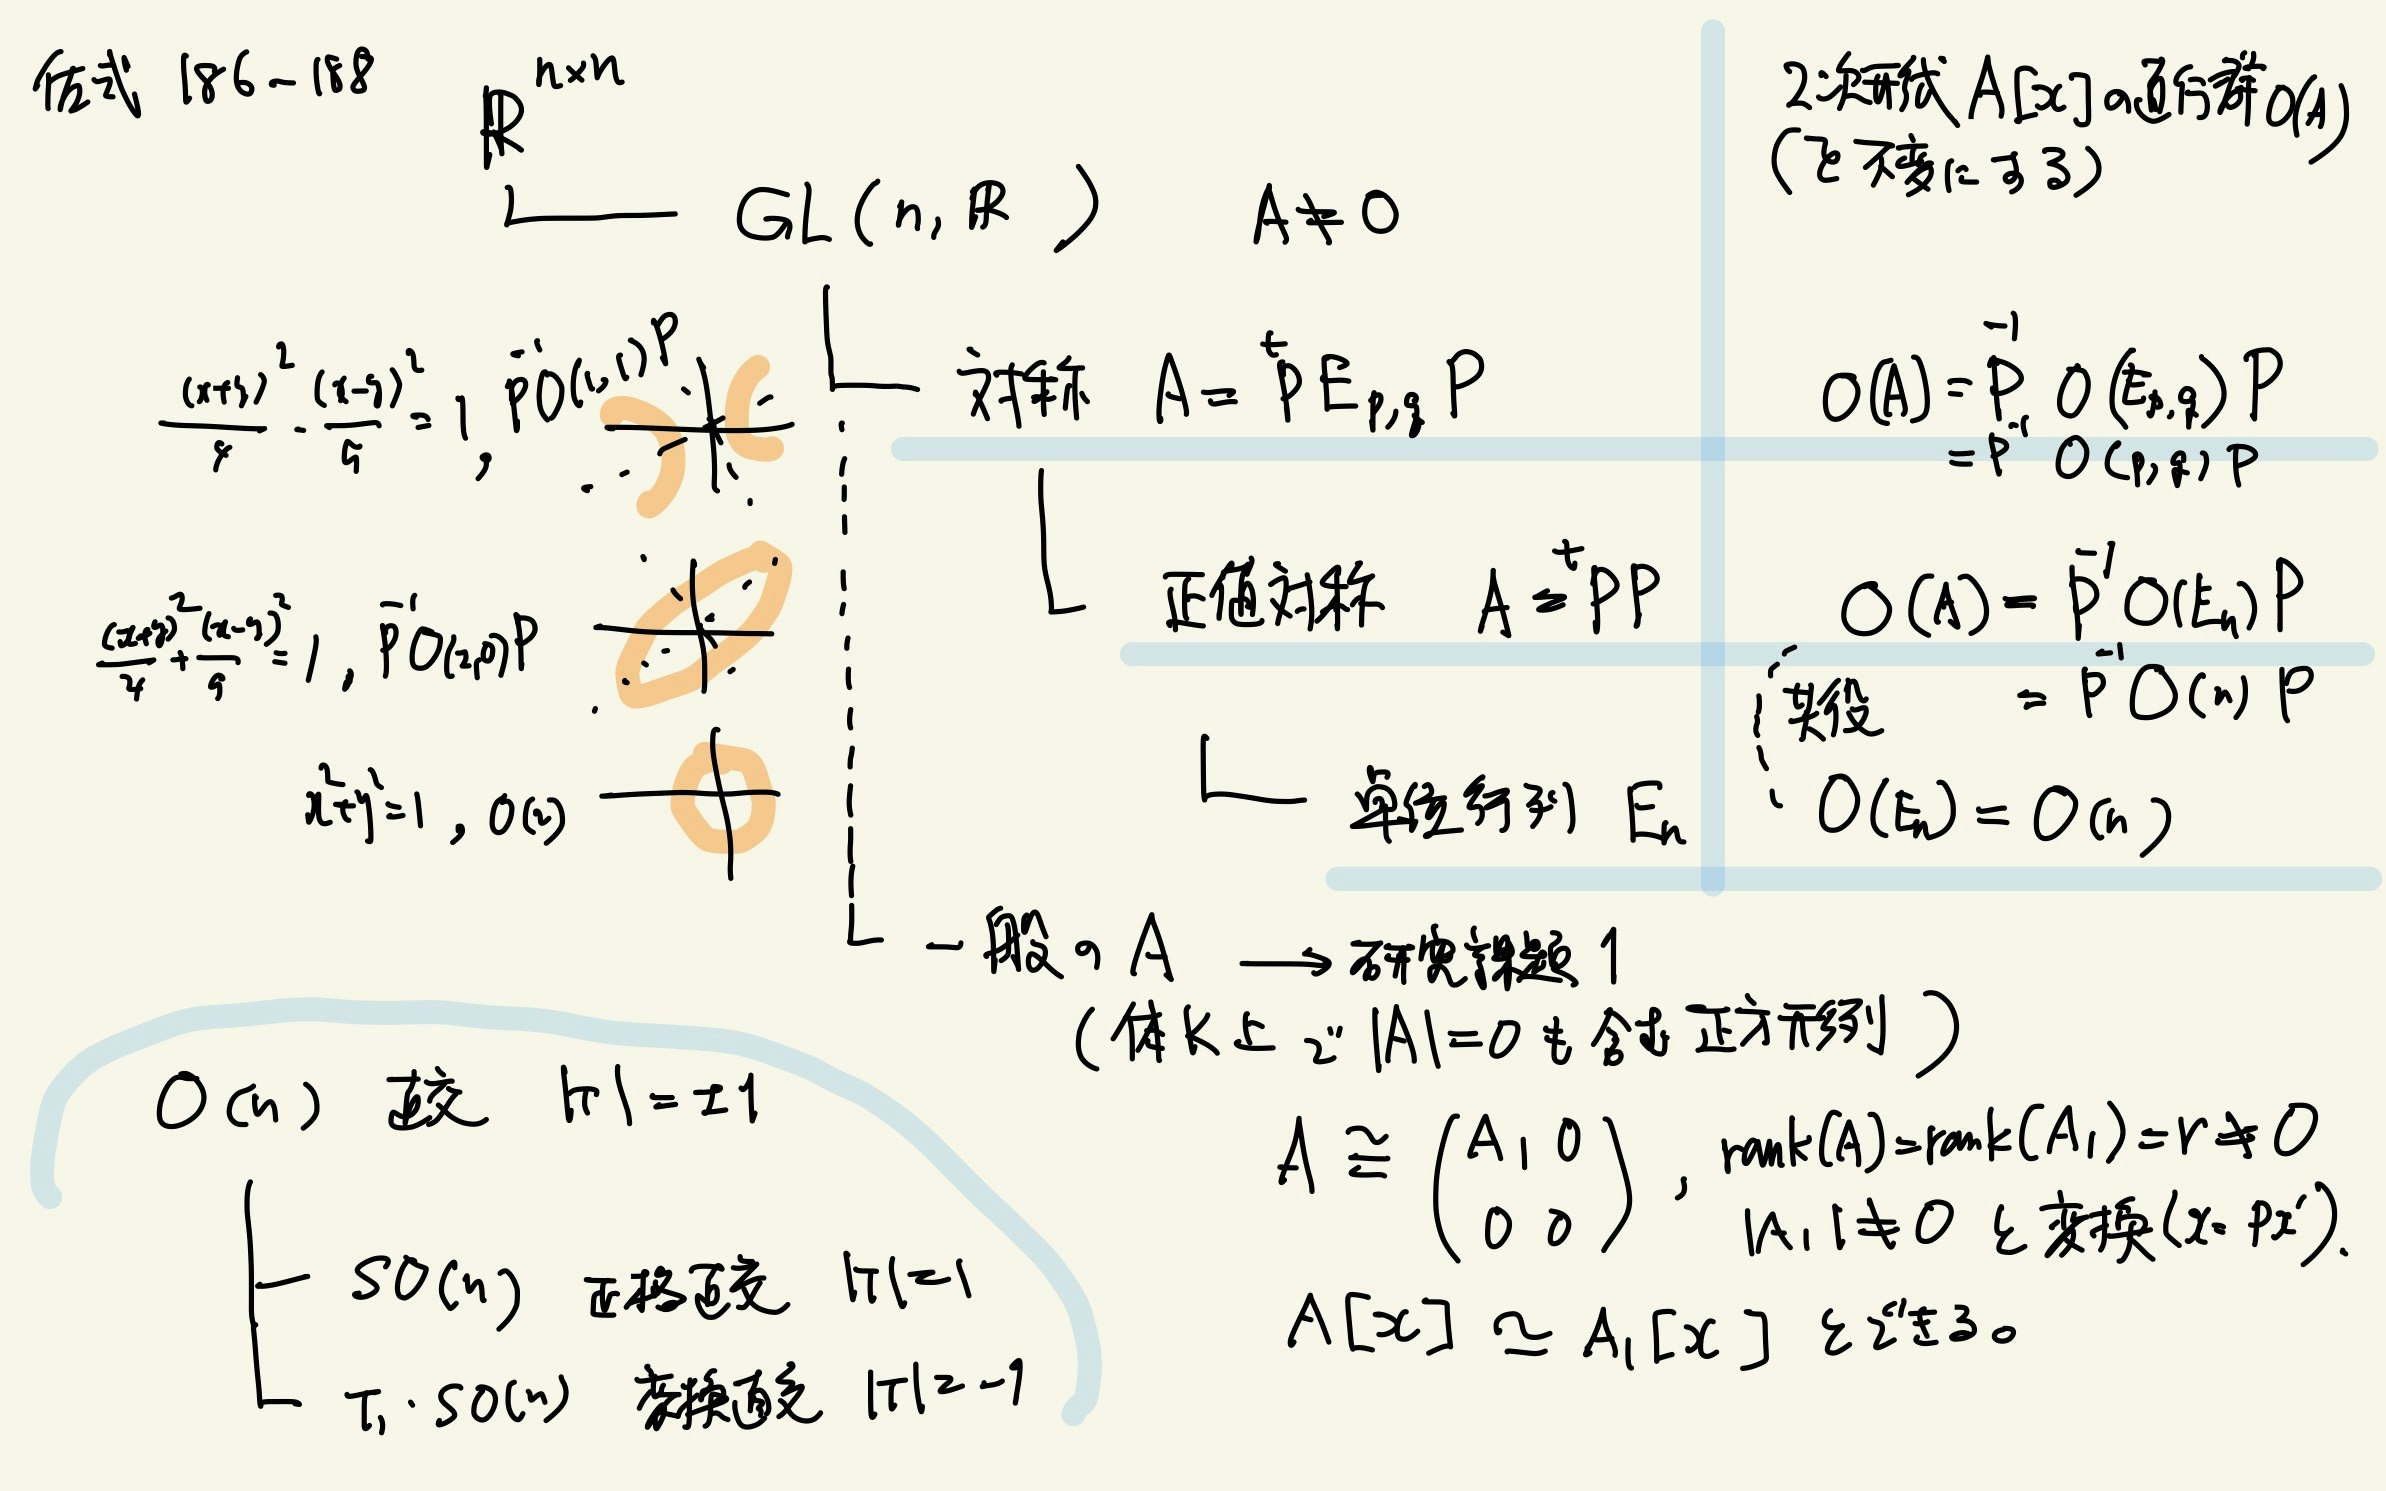 佐武 186~188
ℝ^{n×n}
GL(n, ℝ) A≠0
2次形式 A[x]の直行群O(A)
(を不変にする)
(x+y)²/4 - (x-y)²/9 = 1, P⁻¹O(1,1)P
対称 A = ᵗP E_{p,q} P
O(A) = P⁻¹ O(E_{p,q}) P
= P⁻¹ O(p,q) P
(x+y)²/4 + (x-y)²/9 = 1, P⁻¹O(2,0)P
正値対称 A = ᵗPP
O(A) = P⁻¹O(E_n)P
共役 = P⁻¹O(n)P
x²+y²=1, O(2)
単位行列 E_n
O(E_n) = O(n)
一般の A → 研究課題 1
(体 K 上で |A|=0 も含む正方行列)
O(n) 直交 |T| = ±1
A ≅ (A₁ 0
0 0), rank(A)=rank(A₁)=r≠0
|A₁|≠0 と変換(x=Px').
SO(n) 正格直交 |T|=1
A[x] ≃ A₁[x] とできる。
T₁・SO(n) 変換直交 |T|=-1